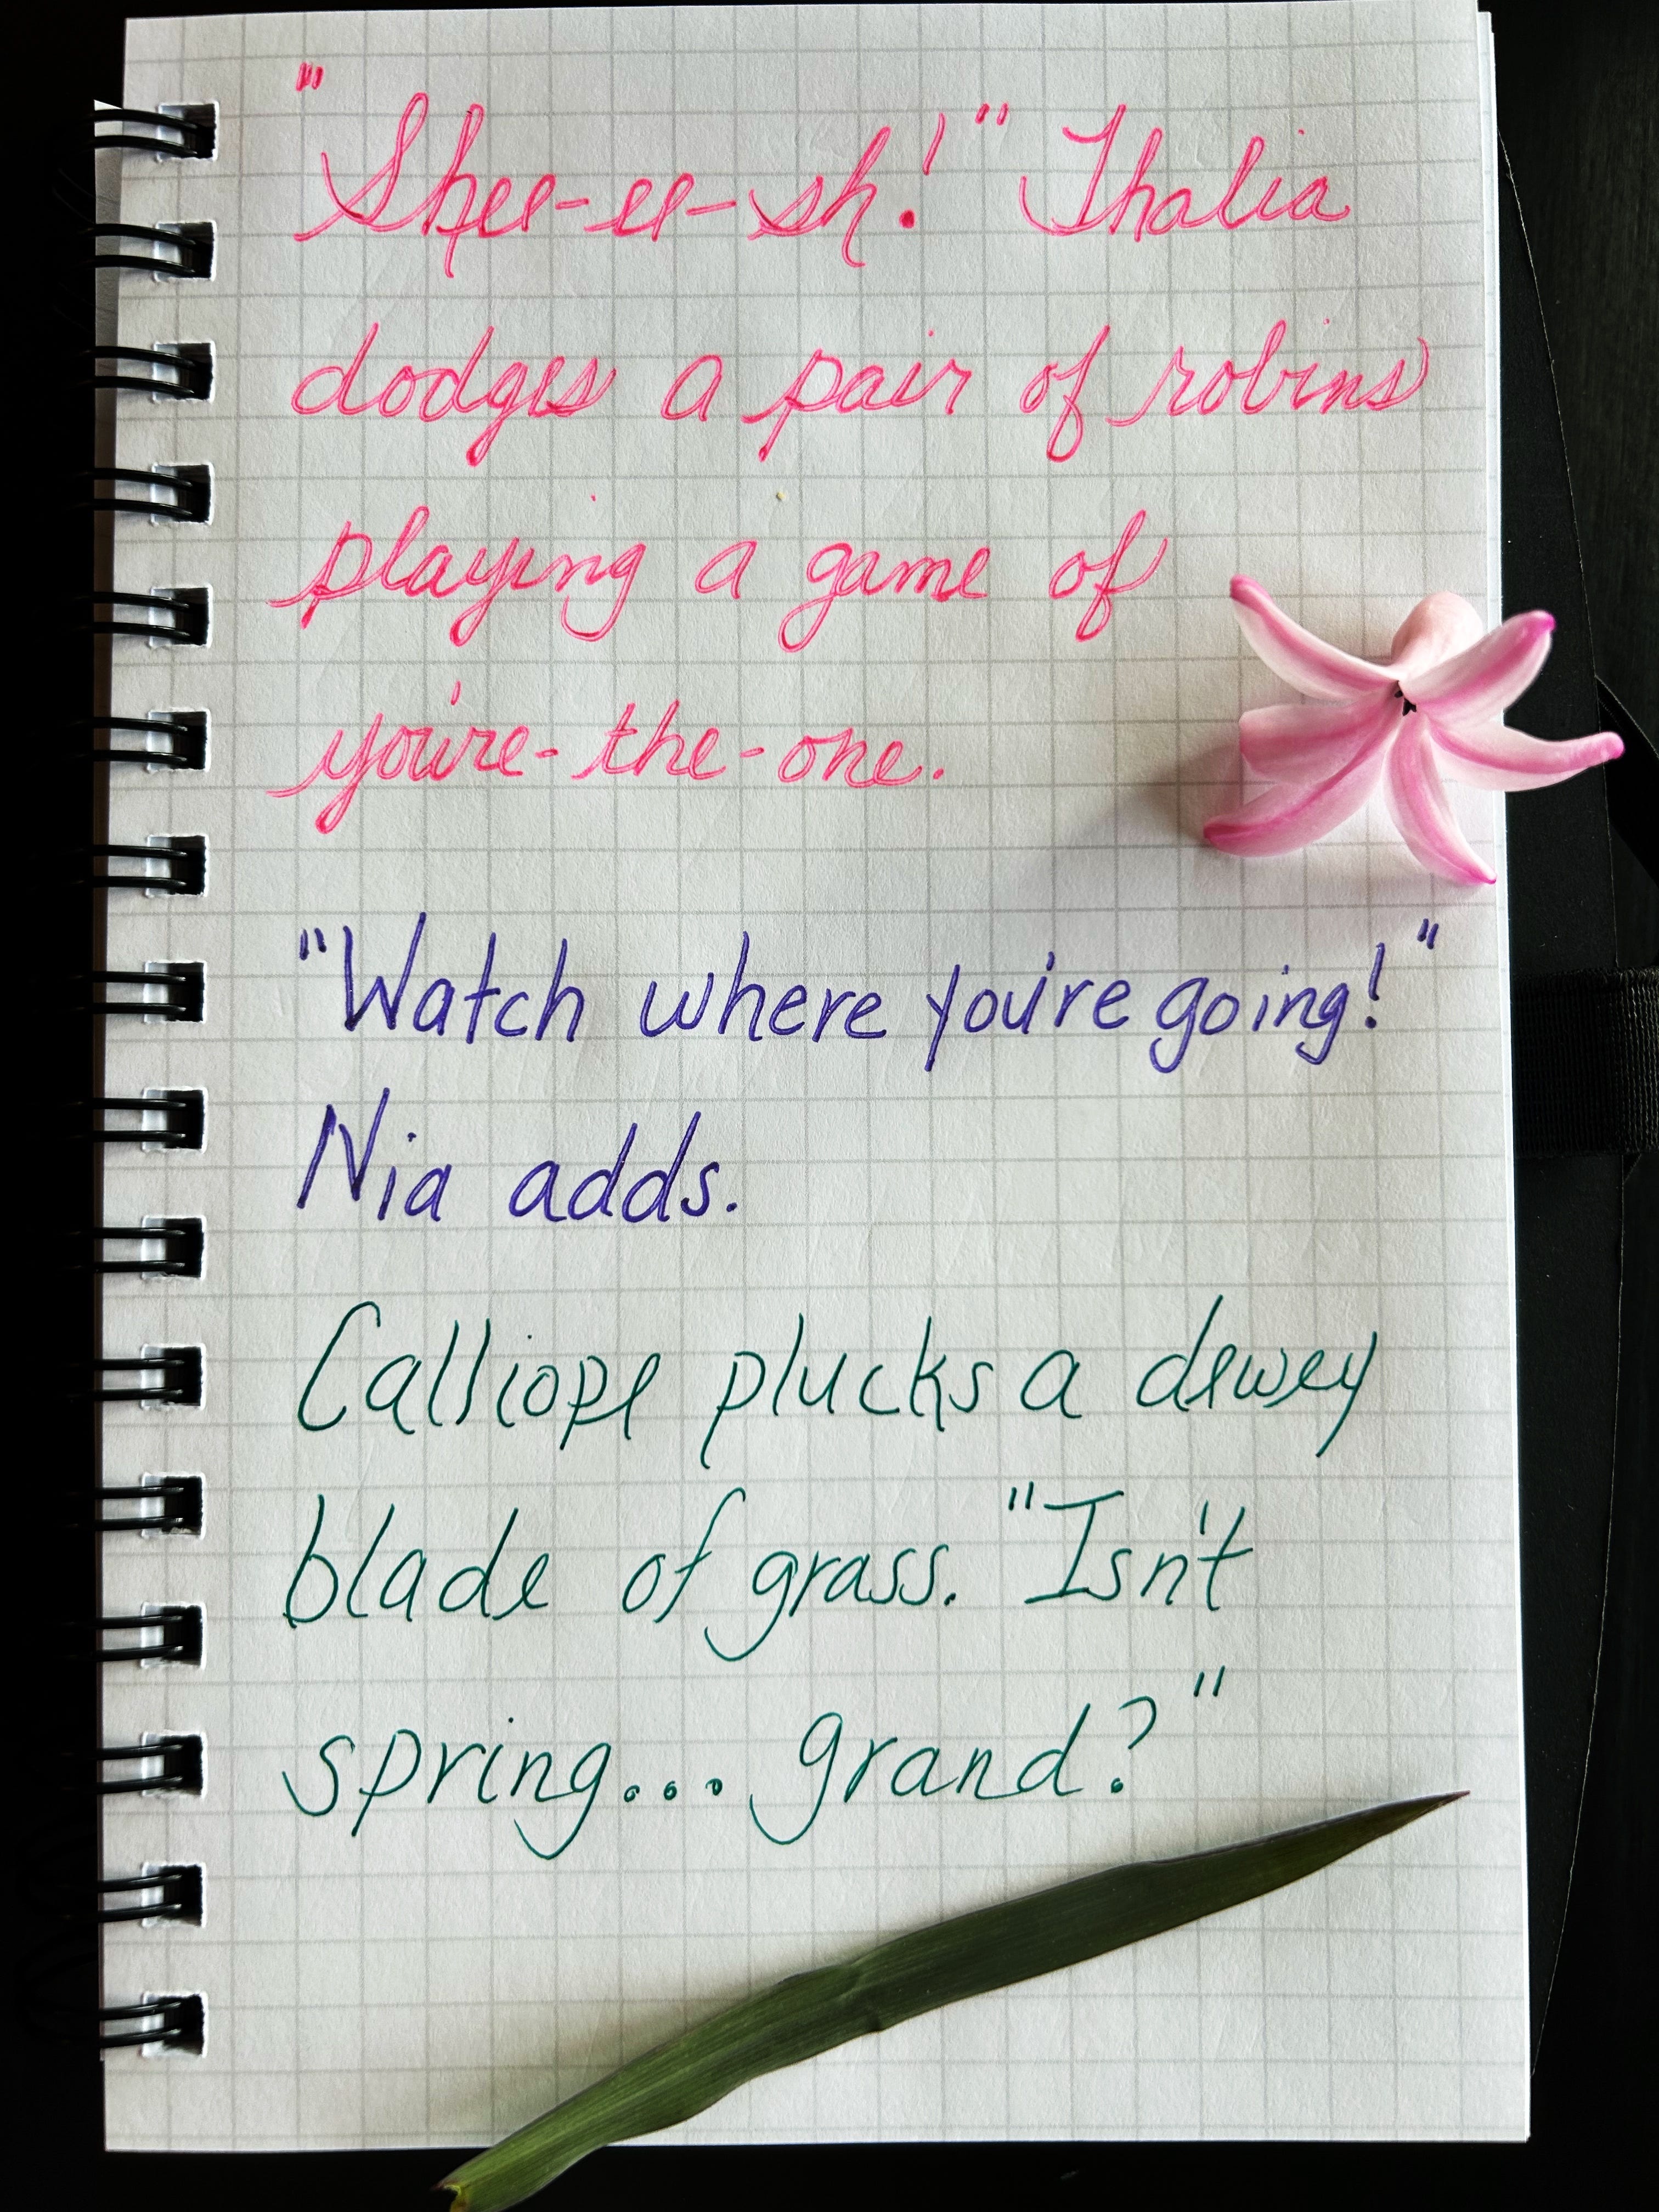 "Shee-ee-sh!" Thalia
dodges a pair of robins
playing a game of
you're-the-one.
"Watch where you're going!"
Nia adds.
Calliope plucks a dewey
blade of grass. "Isn't
spring... grand?"